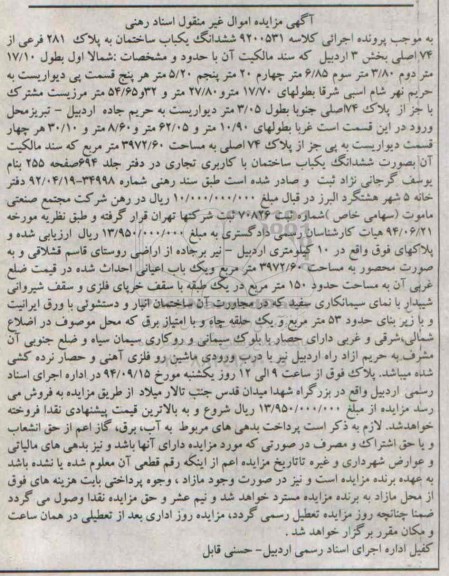 آگهی مزایده اموال غیر منقول اسناد رهنی
به موجب پرونده اجرائی کلاسه ۹۲۰۰۵۳۱ ششدانگ یکباب ساختمان به پلاک ۲۸۱ فرعی از
۷۴ اصلی بخش ۳ اردبیل که سند مالکیت آن با حدود و مشخصات :شمالا اول بطول ۱۷/۱۰
متر دوم ۳/۸۰ متر سوم ۶/۸۵ متر چهارم ۲۰ متر پنجم ۵/۲۰ متر هر پنج قسمت پی دیواریست به
حریم نهر شام اسبی شرقا بطولهای ۱۷/۷۰ مترو ۲۷/۸۰ متر و ۳۲و۵۴/۶۵ متر مرزیست مشترک
با جز از پلاک ۷۴اصلی جنوبا بطول ۳/۰۵ متر دیواریست به حریم جاده اردبیل - تبریزمحل
ورود در این قسمت است غربا بطولهای ۱۰/۹۰ متر و ۶۲/۰۵ متر و ۸/۶۰ متر و ۳۰/۱۰ هر چهار
قسمت دیواریست به پی جز از پلاک ۷۴ اصلی به مساحت ۳۹۷۲/۶۰ متر مربع که سند مالکیت
آن بصورت ششدانگ یکباب ساختمان با کاربری تجاری در دفتر جلد ۶۹۴صفحه ۲۵۵ بنام
یوسف گرجانی نژاد ثبت و صادر شده است طبق سند رهنی شماره ۳۴۹۹۸-۹۲/۰۴/۱۹ دفتر
خانه ۵ شهر هشتگرد البرز در قبال مبلغ ۱۰/۰۰۰/۰۰۰/۰۰۰ ریال در رهن شرکت مجتمع صنعتی
ماموت (سهامی خاص )شماره ثبت ۷۰۸۲۶ ثبت شرکتها تهران قرار گرفته و طبق نظریه مورخه
۹۴/۰۶/۲۱ هیات کارشناسان رسمی دادگستری به مبلغ ۱۳/۹۵۰/۰۰۰/۰۰۰ ریال ارزیابی شده و
پلاکهای فوق واقع در ۱۰ کیلومتری اردبیل - نیر برجاده از اراضی روستای قاسم قشلاقی و به
صورت محصور به مساحت ۳۹۷۲/۶۰ متر مربع ویک باب اعیانی احداث شده در قیمت ضلع
غربی آن به مساحت حدود ۱۵۰ متر مربع در یک طبقه با سقف خرپای فلزی و سقف شیروانی
شیبدار با نمای سیمانکاری سفید که در مجاورت آن ساختمان انبار و دستشوئی با ورق ایرانیت
و با زیر بنای حدود ۵۳ متر مربع و یک حلقه چاه و با امتیاز برق که محل موصوف در اضلاع
شمالی،شرقی و غربی دارای حصار با بلوک سیمانی و روکاری سیمان سیاه و ضلع جنوبی آن
مشرف به حریم ازاد راه اردبیل نیر با درب ورودی ماشین رو فلزی آهنی و حصار نرده کشی
شده میباشد. پلاک فوق از ساعت ۹ الی ۱۲ روز یکشنبه مورخ ۹۴/۰۹/۱۵ در اداره اجرای اسناد
رسلمی اردبیل واقع در بزرگراه شهدا میدان قدس جنب تالار میلاد از طریق مزایده به فروش می
رسد مزایده از مبلغ ۱۳/۹۵۰/۰۰۰/۰۰۰ ریال شروع و به بالاترین قیمت پیشنهادی نقدا فروخته
خواهدشد. لازم به ذکر است پرداخت بدهی های مربوط به آب، برق، گاز اعم از حق انشعاب
و یا حق اشتراک و مصرف در صورتی که مورد مزایده دارای آنها باشد و نیز بدهی های مالیاتی
و عوارض شهرداری و غیره تاتاریخ مزایده اعم از اینکه رقم قطعی آن معلوم شده یا نشده باشد
به عهده برنده مزایده است و نیز در صورت وجود مازاد ، وجوه پرداختی بابت هزینه های فوق
از محل مازاد به برنده مزایده مسترد خواهد شد و نیم عشر و حق مزایده نقدا وصول می گردد
ضمنا چنانچه روز مزایده تعطیل رسمی گردد، مزایده روز اداری بعد از تعطیلی در همان ساعت
و مکان مقرر برگزار خواهد شد .
کفیل اداره اجرای اسناد رسمی اردبیل- حسنی قابل